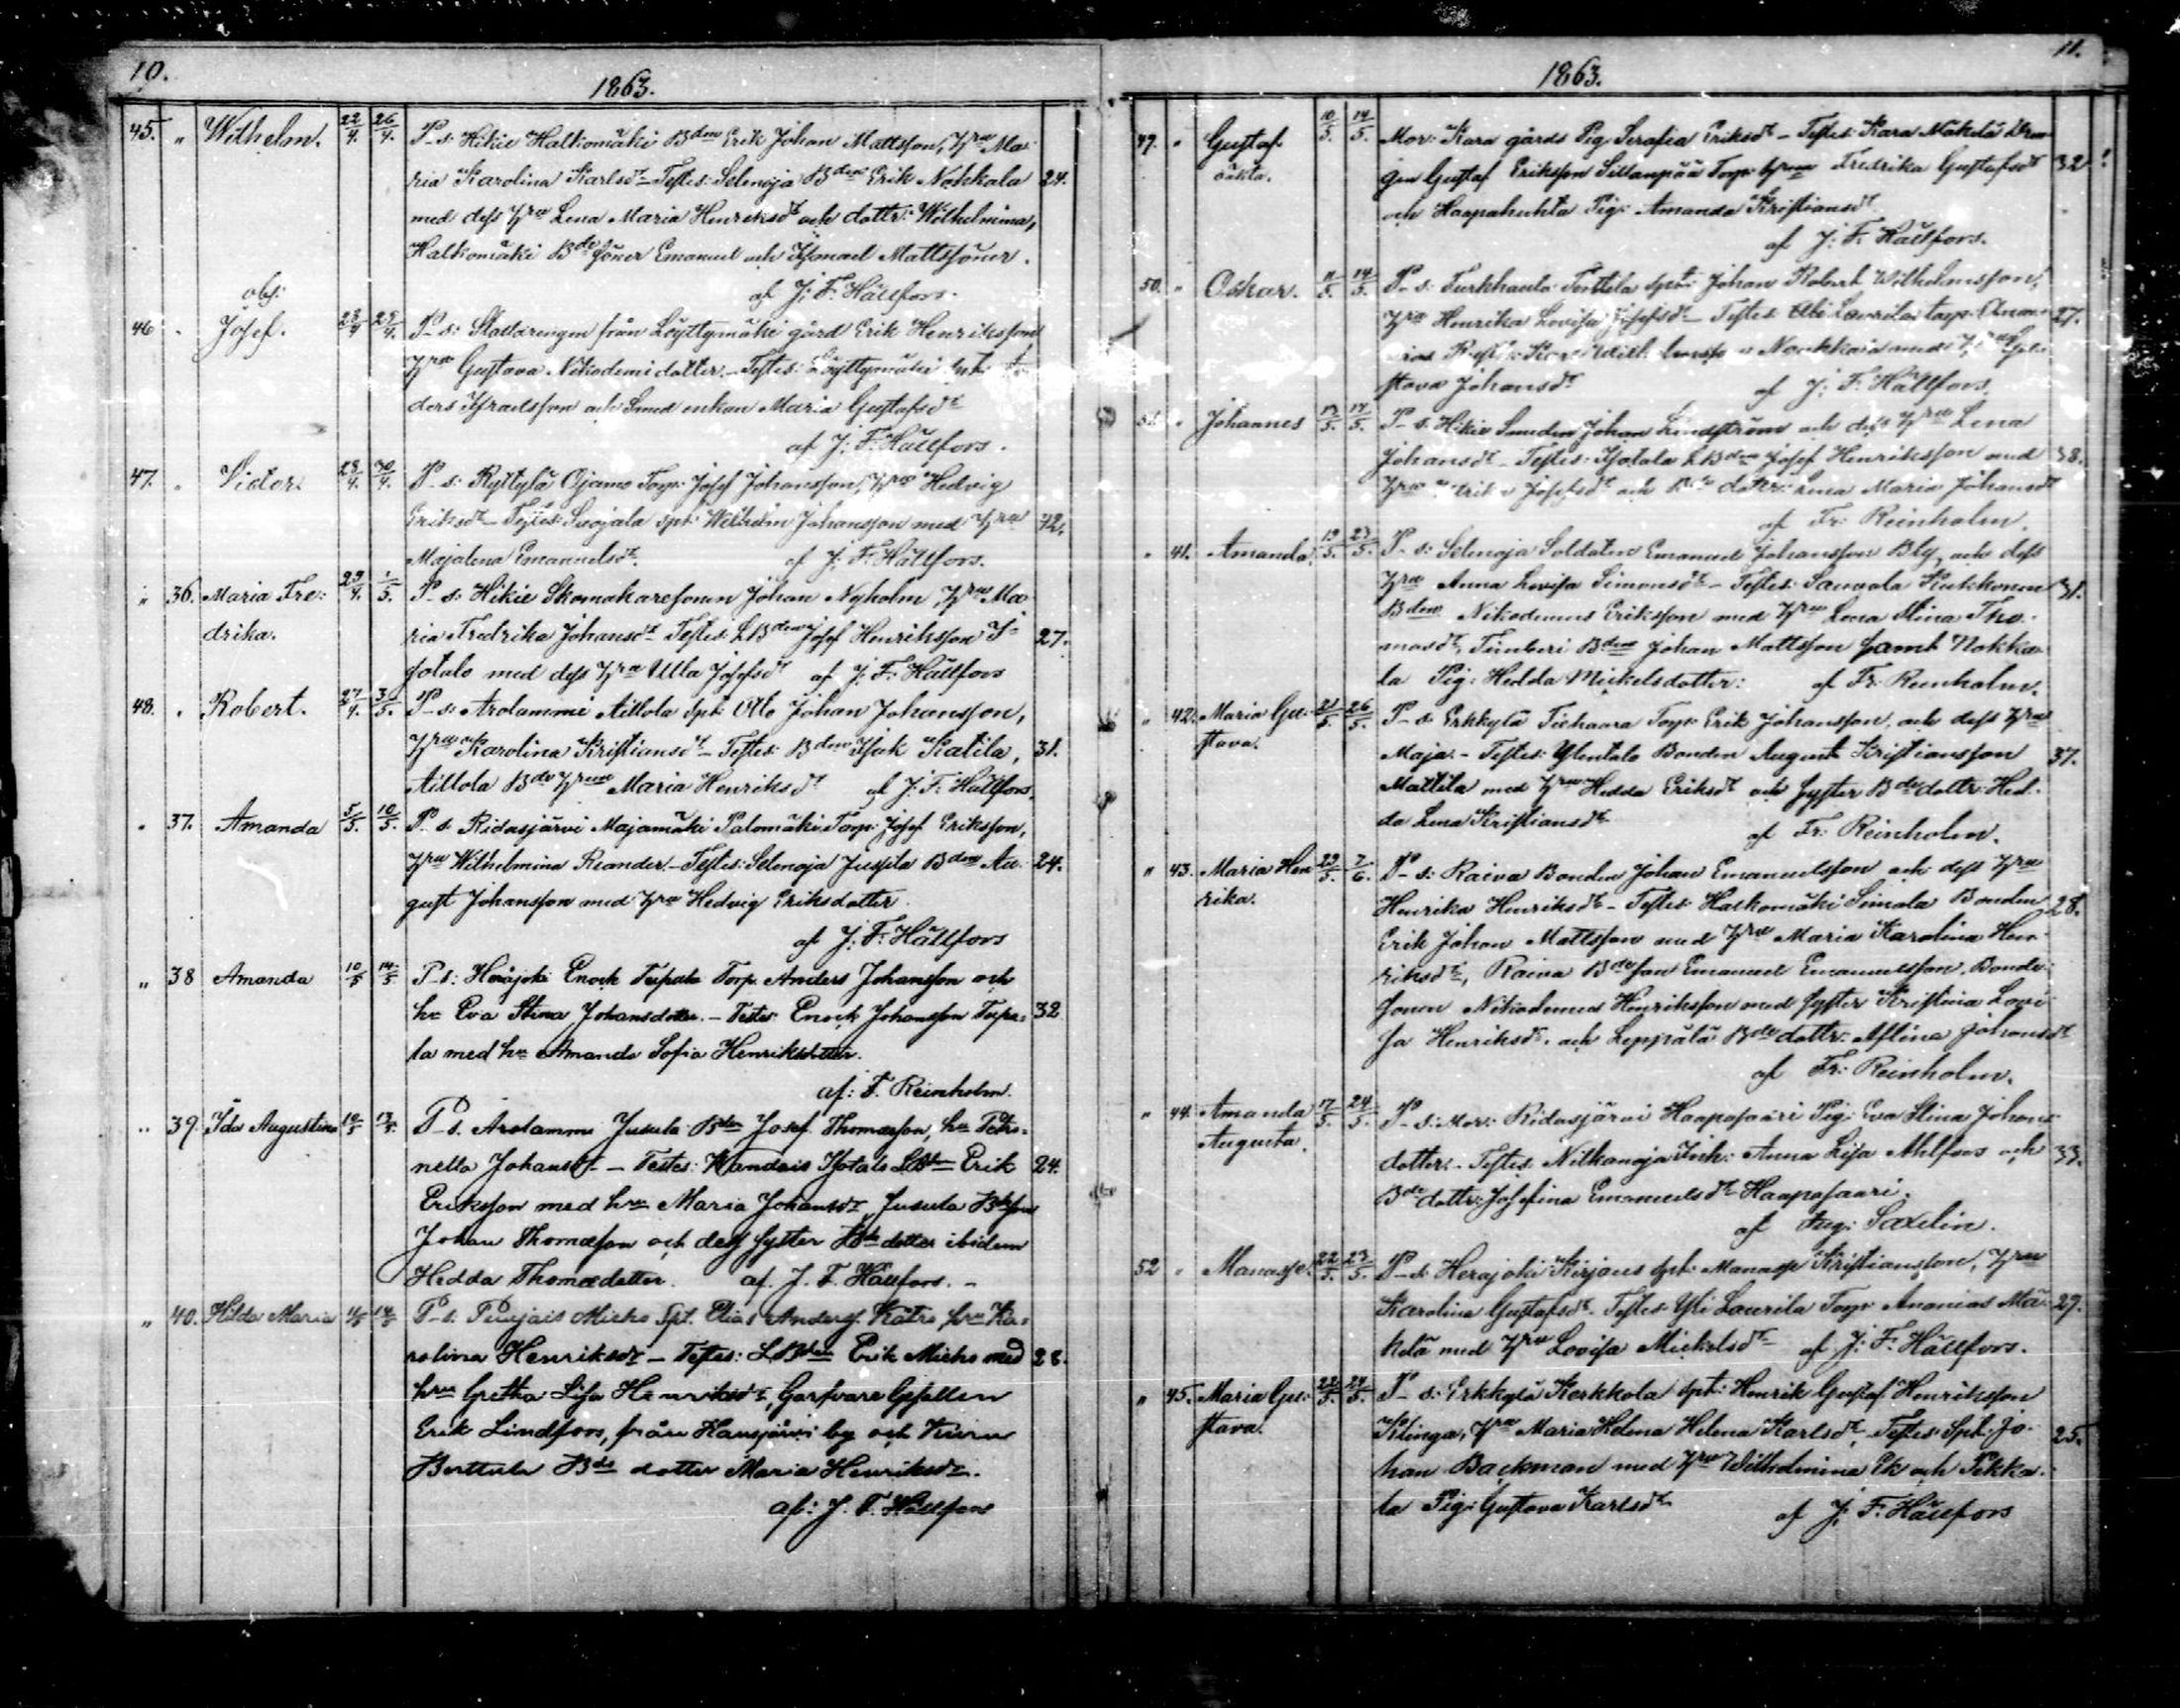 10.
1863.
45. " Wilhelm. 22/4. 26/4. P-s: Hikie Halkomäki Bden Erik Johan Mattsson, hru Ma-
ria Karolina Karlsdr - Testes: Selenoja Bden Erik Nokkala 24.
med dess hru Lena Maria Henriksdr och dottr: Wilhelmina,
Halkomäki Bde söner Emanuel och Ismael Mattssöner.
af J: F: Hällfors.
obs:
46 " Josef. P-s: Statdrengen från Löyttymäki gård Erik Henriksson
hru Gustava Nikodemidotter. - Testes: Löyttymäki
ders Israelsson och Smed enkan Maria Gustafsdr
af J: F: Hällfors.
47. " Victor. 28/4. 30/4. P-s: Ryttylä Ojamo Torp: Josef Johansson, hru Hedvig
Eriksdr - Testes: Suojala spt: Wilhelm Johansson med hru 42.
Majalena Emanuelsdr. af J: F: Hällfors.
" 36. Maria Fre- 29/4. 1/5. P-s: Hikie Skomakaresonen Johan Nyholm, hru Ma-
drika. ria Fredrika Johansdr Testes: LBden Josef Henriksson I- 27.
sotalo med dess hru Ulla Josefsdr af J: F: Hällfors
48. " Robert. 27/4. 3/5. P-s: Arolammi Aillola spt: Otto Johan Johansson,
hru Karolina Kristiansdr - Testes: Bden Isak Katila, 31.
Aillola Bde hrun Maria Henriksdr af J: F: Hällfors.
" 37. Amanda 5/5. 10/5. P-s: Ridasjärvi Majamäki Palomäki Torp: Josef Eriksson,
hru Wilhelmina Reander. - Testes: Selenoja Jussila Bden Au- 24.
gust Johansson med hru Hedvig Eriksdotter.
af J: F: Hällfors
" 38 Amanda 10/5 14/5 P-s: Herajoki Enock Tupala Torp. Anders Johansson och
h. Eva Stina Johansdotter. - Testes: Enock Johansson Tupa- 32
la med h. Amanda Sofia Henriksdotter.
af: F. Reinholm.
" 39. Ida Augustina P-s. Arolammi Jusula Bden Josef Thomasson, hu Petro-
nella Johansdr - Testes: Wandais Isotalo LBden Erik 24.
Eriksson med hru Maria Johansdr, Jusula Bdeson
Johan Thomasson och dess syster Bde dotter ibidem
Hedda Thomædotter. af. J. F. Hällfors. -
" 40. Hilda Maria P-s. Puujais Micko Spt. Elias Anderss. Kätro, hru Ka-
rolina Henriksdr - Testes: LBden Erik Micko med 28.
hru Gretha Lisa Henriksdr, Garfvare Gesällen
Erik Lindfors, från Hausjärvi by och
Berttula Bde dotter Maria Henriksdr.
af: J. F. Hällfors
11.
1863.
49. " Gustaf 10/5. 14/5. Mor: Kara gårds Pig. Serafia Eriksdr - Testes: Kara Mäkelä Dren-
oäkta. gen Gustaf Eriksson Sillanpää Torp: hrun Fredrika Gustafsdr 32
och Haapahuhta Pig: Amanda Kristiansdr
af J: F: Hällfors.
50. " Oskar. 11/5. 14/5. P-s: Turkhauta Torttila spt: Johan Robert Wilhelmsson,
hru Henrika Lovisa Josefsdr - Testes: Laurila torp: Ana- 27.
nias med hru Gu-
stava Johansdr af J: F: Hällfors.
51. " Johannes P-s: Hikie Smeden Johan Lindström och dess hru Lena
Johansdr - Testes: Isotalo LBden Josef Henriksson med 38.
hru Josefsdr och dotter: Lena Maria Johansdr
af Fr: Reinholm.
" 41. Amanda. 19/5. 23/5. P-s: Selenoja Soldaten Emanuel Johansson Bly, och dess
hru Anna Lovisa Simonsdr - Testes: Sauvala Kukkonen 31.
Bden Nikodemus Eriksson med hru Lena Stina Tho-
masdr, Timberi Bden Johan Mattsson samt Nokka-
la Pig: Hedda Mickelsdotter: af Fr: Reinholm.
" 42. Maria Gu- 21/5. 26/5. P-s: Erkkylä Tiehaara Torp: Erik Johansson och dess hru
stava. Maja. - Testes: Ylentalo Bonden August Kristiansson 37.
Mattila med hru Hedda Eriksdr och syster Bde dottr: Hed-
da Lena Kristiansdr af Fr: Reinholm.
" 43. Maria Hen 29/5. 7/6. P-s: Raiva Bonden Johan Emanuelsson och dess hru
rika. Henrika Henriksdr - Testes: Halkomäki Simola Bonden 28.
Erik Johan Mattsson med hru Maria Karolina Hen-
riksdr, Raiva Bdeson Emanuel Emanuelsson, Bonde-
sonen Nikodemus Henriksson med syster Kristina Lovi-
sa Henriksdr. och Leppälä Bde dottr: Aflina Johansdr
af Fr: Reinholm.
" 44. Amanda 17/5. 24/5. P-s: Mor: Ridasjärvi Haapasaari Pig: Eva Stina Johans-
Augusta. dotter. - Testes: Nilkanoja Inh: Anna Lisa Ahlfors och 33.
Bde dottr: Josefina Emanuelsdr Haapasaari.
af Aug: Saxelin.
52 " Manasse. 22/5. 23/5. P-s: Herajoki Kirjaus spt: Manasse Kristiansson, hru
Karolina Gustafsdr. Testes: Yli Laurila Torp: Ananias Mä- 29.
kelä med hru Lovisa Mickelsdr af J: F: Hällfors.
" 45. Maria Gu- 22/5. 24/5. P-s: Erkkylä Kerkkola spt: Henrik Gustaf Henriksson
stava. Klinga, hru Maria Helena Helena Karlsdr, - Testes: Spt: Jo- 25.
han Backman med hru Wilhelmina Ek och Pekka-
la Pig: Gustava Karlsdr
af J: F: Hällfors